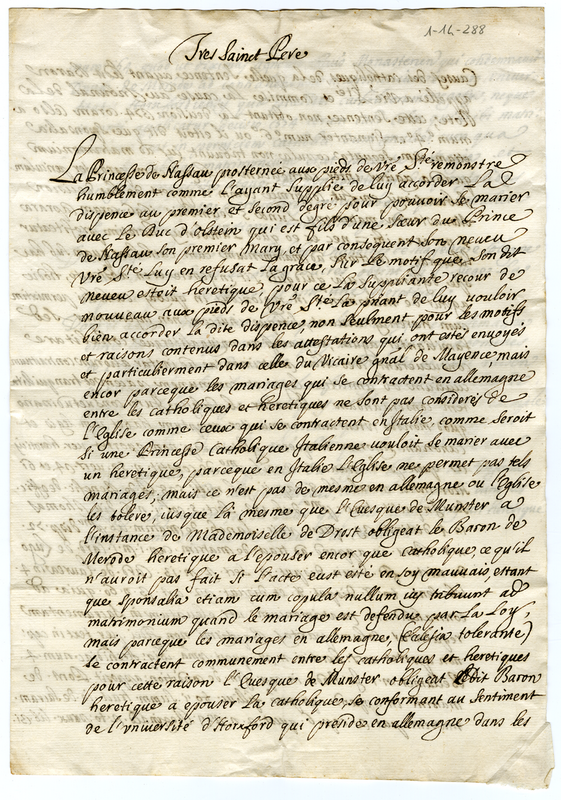 1-14-288
Tres Sainct Pere
La Princesse de Nassau prosternée aux pieds de Vre Sté remonstre
humblement comme l'ayant supplie de luy accorder La
dispence au premier et second degré pour pouvoir se marier
avec Le Duc d'olstein qui est fils d'une sœur du Prince
de Nassau son premier Mary, et par consequent son neveu
Vre Sté Luy en refusat La grace, sur Le motif que son dit
neveu estoit heretique, pour ce La suppliante recour de
nouveau aux pieds de Vre Sté La priant de luy vouloir
bien accorder la dite dispence, non seulment pour les motifs
et raisons contenus dans les attestations qui ont estés envoyés
et particulierment dans celle du Vicaire gnal de Mayence, mais
encor parceque les mariages qui se contractent en allemagne
entre les catholiques et heretiques ne sont pas considerés de
L'Eglise comme ceux qui se contractent en Italie comme seroit
si une Princesse Catholique Italienne vouloit se marier avec
un heretique, parceque en Italie L'Eglise ne permet pas tels
mariages, mais ce n'est pas de mesme en allemagne ou l'Eglise
les tolere, jusque Là mesme que l'Evesque de Munster a
l'instance de Mademoiselle de Drost obligeat le Baron de
Merode heretique a l'epouser encor que catholique, ce qu'il
n'auroit pas fait si l'acte eust esté en soy mauvais, estant
que sponsalia etiam cum copula nullum ius tribuunt ad
matrimonium quand le mariage est defendu par La Loy,
mais parceque les mariages en allemagne, (Eclesia tolerante)
se contractent communement entre les catholiques et heretiques
pour cette raison l'Evesque de Munster obligeat Ledit Baron
heretique a epouser La catholique, se conformant au sentiment
de l'université d'Horxford qui preside en allemagne dans les